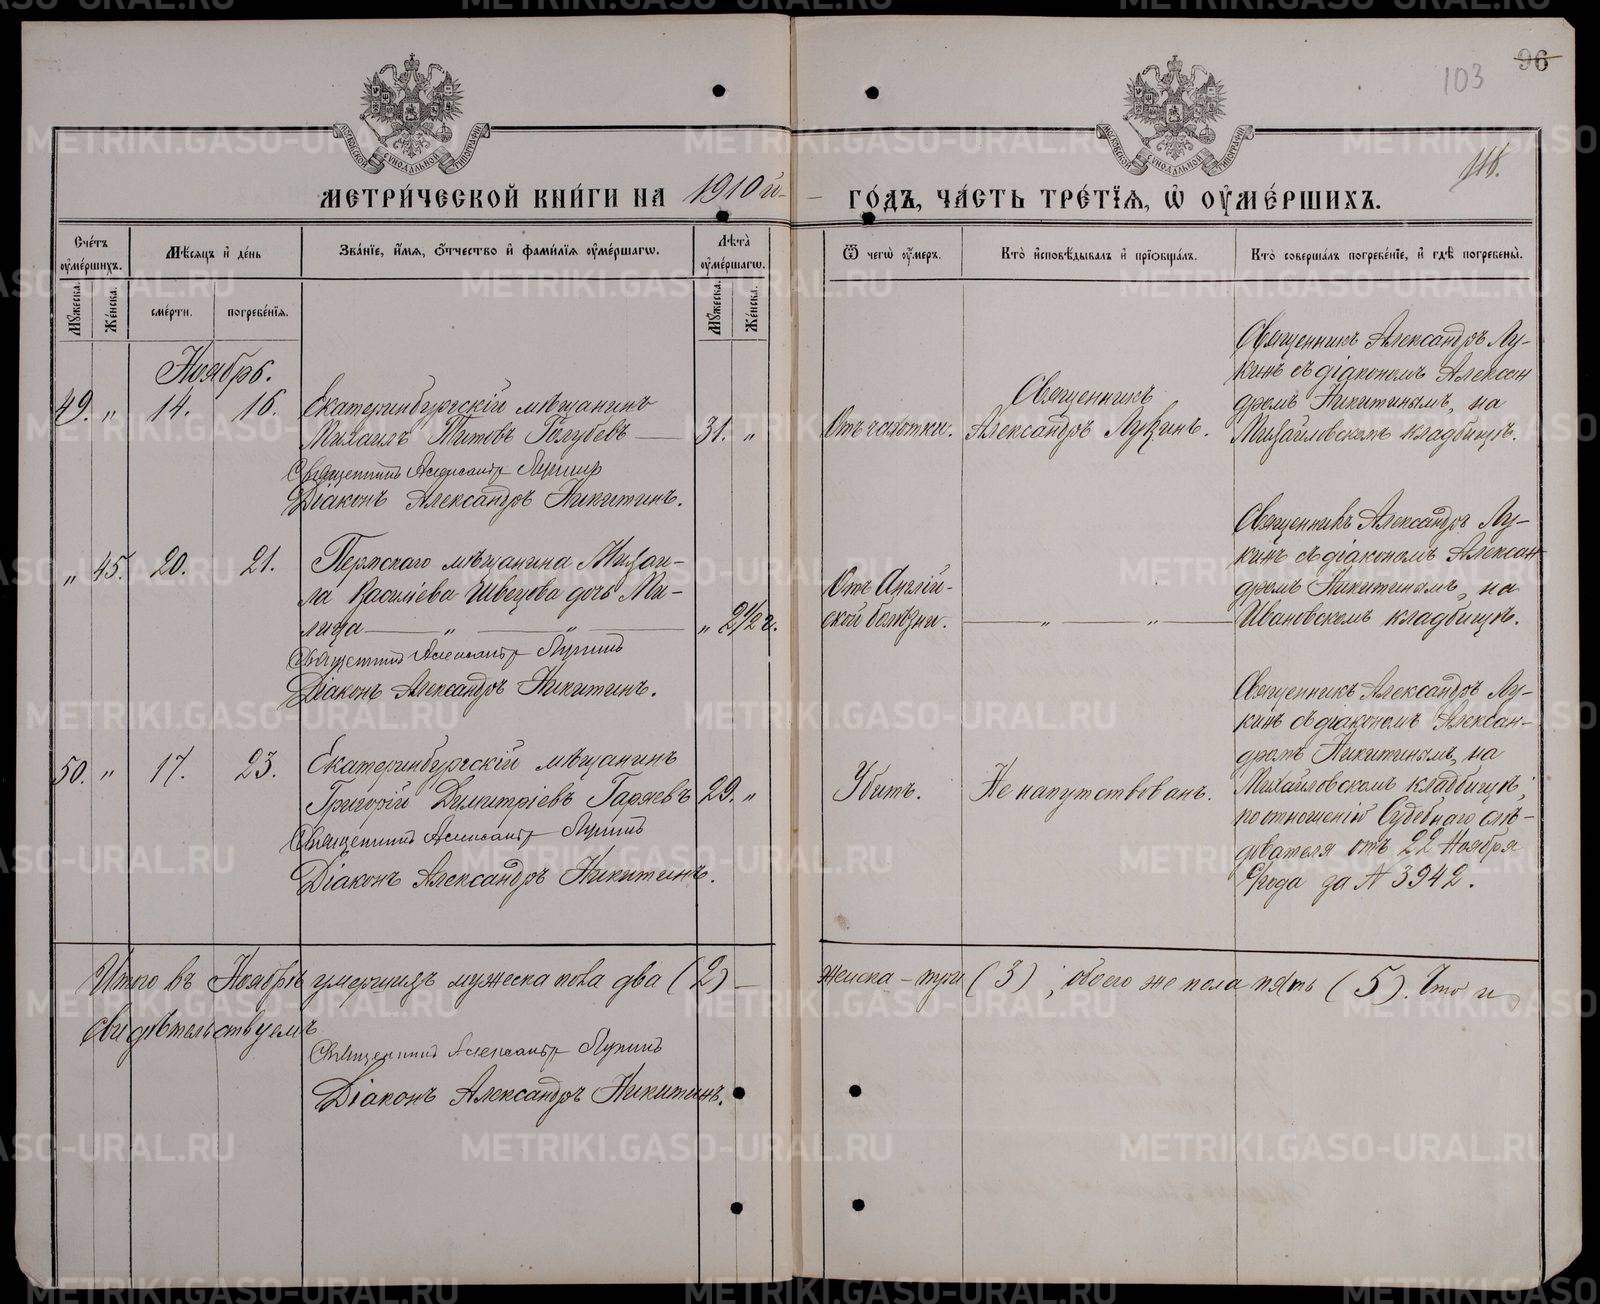 96
103
118.
МЕТРИ́ЧЕСКОЙ КНИ́ГИ НА 1910й
ГО́ДЪ, ЧА́СТЬ ТРЕ́ТЇЯ, Ѡ ОУМЕ́РШИХЪ.
Сче́тъ оуме́ршихъ.
Мѣсяцъ и҆ де́нь
Зва́нїе, и҆́мя, ѻ҆́тчество и҆ фамилїя оуме́ршагѡ.
Лѣта̀ оуме́ршагѡ.
Ѿ чегѡ̀ оу́меръ.
Кто̀ и҆сповѣ́дывалъ и҆ прїѡбща́лъ.
Кто̀ соверша́лъ погребе́нїе, и҆ гдѣ̀ погребены̀.
Мꙋ́жеска.
Же́нска.
сме́рти.
погребе́нїя.
Мꙋ́жеска.
Же́нска.
Ноябрь.
49. „ 14. 16.
Екатеринбургскій мѣщанинъ
Михаилъ Титовъ Голубевъ —
31. „
Священникъ Александръ Лукинъ
Діаконъ Александръ Никитинъ.
Отъ чахотки.
Священникъ
Александръ Лукинъ.
Священникъ Александръ Лу-
кинъ съ діакономъ Алексан
дромъ Никитинымъ, на
Михайловскомъ кладбищѣ.
„ 45. 20. 21.
Пермскаго мѣщанина Михаи-
ла Васильева Швецова дочь Ми-
лица — „ — „ —
„ 2 1/2 г.
Священникъ Александръ Лукинъ
Діаконъ Александръ Никитинъ.
Отъ Англій-
ской болѣзни.
— „ — „ —
Священникъ Александръ Лу-
кинъ съ діакономъ Алексан-
дромъ Никитинымъ, на
Ивановскомъ кладбищѣ.
50. „ 17. 23.
Екатеринбургскій мѣщанинъ
Григорій Димитріевъ Гаряевъ
29. „
Священникъ Александръ Лукинъ
Діаконъ Александръ Никитинъ.
Убитъ.
Не напутствованъ.
Священникъ Александръ Лу-
кинъ съ діакономъ Алексан-
дромъ Никитинымъ, на
Михайловскомъ кладбищѣ,
по отношенію Судебнаго слѣ-
дователя отъ 22 Ноября
с/года за № 3942.
Итого въ Ноябрѣ умершихъ мужеска пола два (2) —
женска – три (3); обоего же пола пять (5). Что и
свидѣтельствуемъ
Священникъ Александръ Лукинъ
Діаконъ Александръ Никитинъ.
METRIKI.GASO-URAL.RU